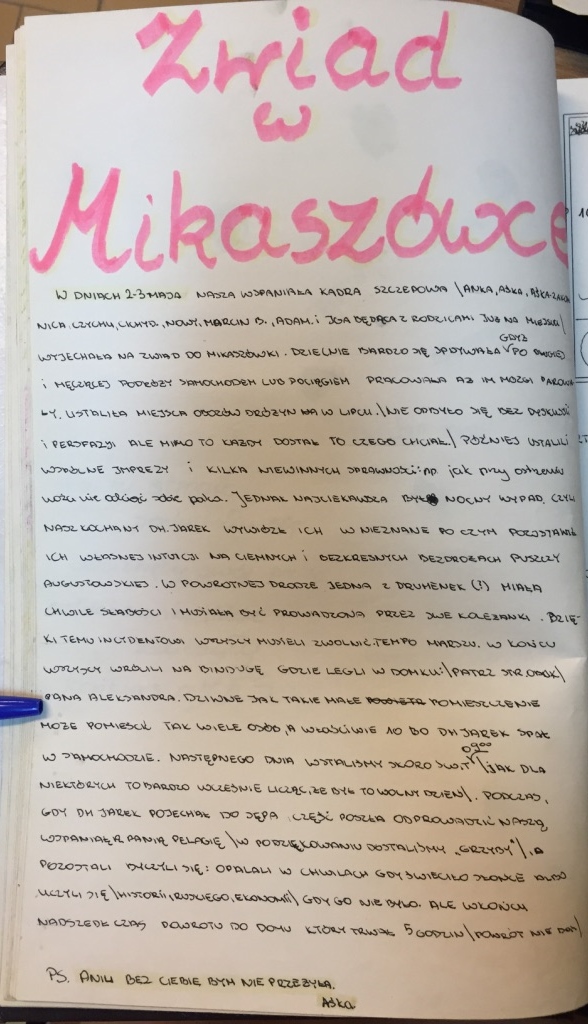 Zwiad
w
Mikaszówce
W DNIACH 2-3 MAJA NASZA WSPANIAŁA KADRA SZCZEPOWA \ANKA, AŚKA, AŚKA
NICA, CZYCHU, NOWY, MARCIN B., ADAM, i IGA BĘDĄCA Z RODZICAMI JUŻ NA MIEJSCU/
WYJECHAŁA NA ZWIAD DO MIKASZÓWKI. DZIELNIE BARDZO SIĘ SPISYWAŁA GDYŻ PO DŁUGIEJ
I MĘCZĄCEJ PODRÓŻY SAMOCHODEM LUB POCIĄGIEM PRACOWAŁA AŻ IM MÓZGI PAROWA
ŁY. USTALIŁA MIEJSCA OBOZÓW DRÓŻYN NA W LIPCU. \NIE OBYŁO SIĘ BEZ DYSKUSJI
I PERSFAZJI ALE MIMO TO KAŻDY DOSTAŁ TO CZEGO CHCIAŁ./ PÓŹNIEJ USTALILI
WSPÓLNE IMPREZY I KILKA NIEWINNYCH SPRAWNOŚCI: np. jak przy ostrzeniu
noża nie obciąć sobie palca. JEDNAK NAJCIEKAWSZA BYŁ NOCNY WYPAD, CZYLI
NASZ KOCHANY DH. JAREK WYWIÓZŁ ICH W NIEZNANE PO CZYM POZOSTAWIŁ
ICH WŁASNEJ INTUICJI NA CIEMNYCH I BEZKRESNYCH BEZDROŻACH PUSZCZY
AUGUSTOWSKIEJ. W POWROTNEJ DRODZE JEDNA Z DRUHENEK (!) MIAŁA
CHWILE SŁABOŚCI I MUSIAŁA BYĆ PROWADZONA PRZEZ DWE KOLEŻANKI. DZIĘ-
KI TEMU INCYDENTOWI WSZYSCY MUSIELI ZWOLNIĆ TEMPO MARSZU. W KOŃCU
WSZYSCY WRÓCILI NA BINDUGĘ GDZIE LEGLI W DOMKU: \PATRZ STR. OBOK/
PANA ALEKSANDRA. DZIWNE JAK TAKIE MAŁE POMIESZCZENIE
MOŻE POMIEŚCIĆ TAK WIELE OSÓB, A WŁAŚCIWIE 10 BO DH JAREK SPAŁ
W SAMOCHODZIE. NASTĘPNEGO DNIA WSTALIŚMY SKORO ŚWIT 09⁰⁰ \JAK DLA
NIEKTÓRYCH TO BARDZO WCZEŚNIE LICZĄC, ŻE BYŁ TO WOLNY DZIEŃ/. PODCZAS,
GDY DH JAREK POJECHAŁ DO SĘPA, CZĘŚĆ POSZŁA ODPROWADZIĆ NASZĄ
WSPANIAŁĄ PANIĄ PELAGIĘ \W PODZIĘKOWANIU DOSTALIŚMY „GRZYBY"/, A
POZOSTALI BYCZYLI SIĘ: OPALALI W CHWILACH GDY ŚWIECIŁO SŁOŃCE ALBO
UCZYLI SIĘ \HISTORII, RUSKIEGO, EKONOMII/ GDY GO NIE BYŁO. ALE W KOŃCU
NADSZEDŁ CZAS POWROTU DO DOMU KTÓRY TRWAŁ 5 GODZIN \POWRÓT NIE DOM/
PS. ANIU BEZ CIEBIE BYM NIE PRZEŻYŁA.
AŚKA